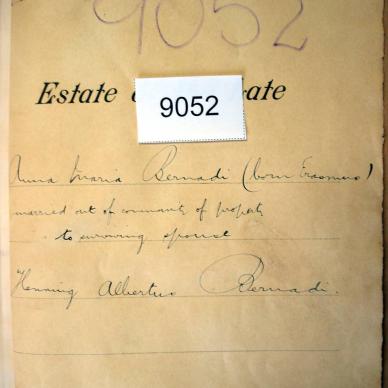 9052
Estate ate
9052
Anna Maria Bernadi (born Erasmus)
married out of community of property
to surviving spouse
Henning Albertus Bernadi.